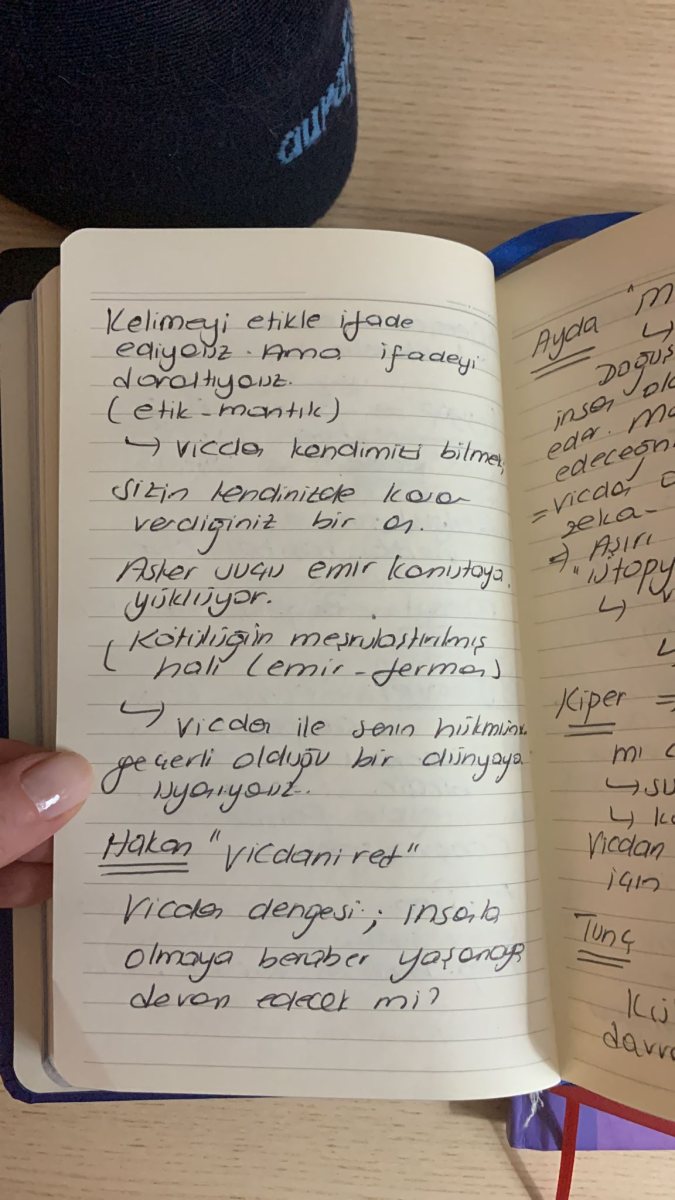 Kelimeyi etikle ifade
ediyoruz. Ama ifadeyi
daraltıyoruz.
(etik - mantık)
↳ vicdan kendimizi bilmek,
sizin kendinizde karar
verdiğiniz bir an.
Asker suçu emir komutaya
yüklüyor.
( Kötülüğün meşrulaştırılmış
hali (emir - ferman)
↳ Vicdan ile senin hükmünün
geçerli olduğu bir dünyaya
uyanıyoruz.
Hakan "Vicdani ret"
Vicdan dengesi;
olmaya beraber yaşamaya
devam edecek mi?
Ayda "M
↳
Doğuş
insan ola
eder. Ma
edeceğin
= vicdan
zeka-
⇒ Aşırı
"ütopy
↳ V
↳
Kiper ⇒
mı
↳ su
↳ ka
Vicdan
için
Tunç
Kü
davra